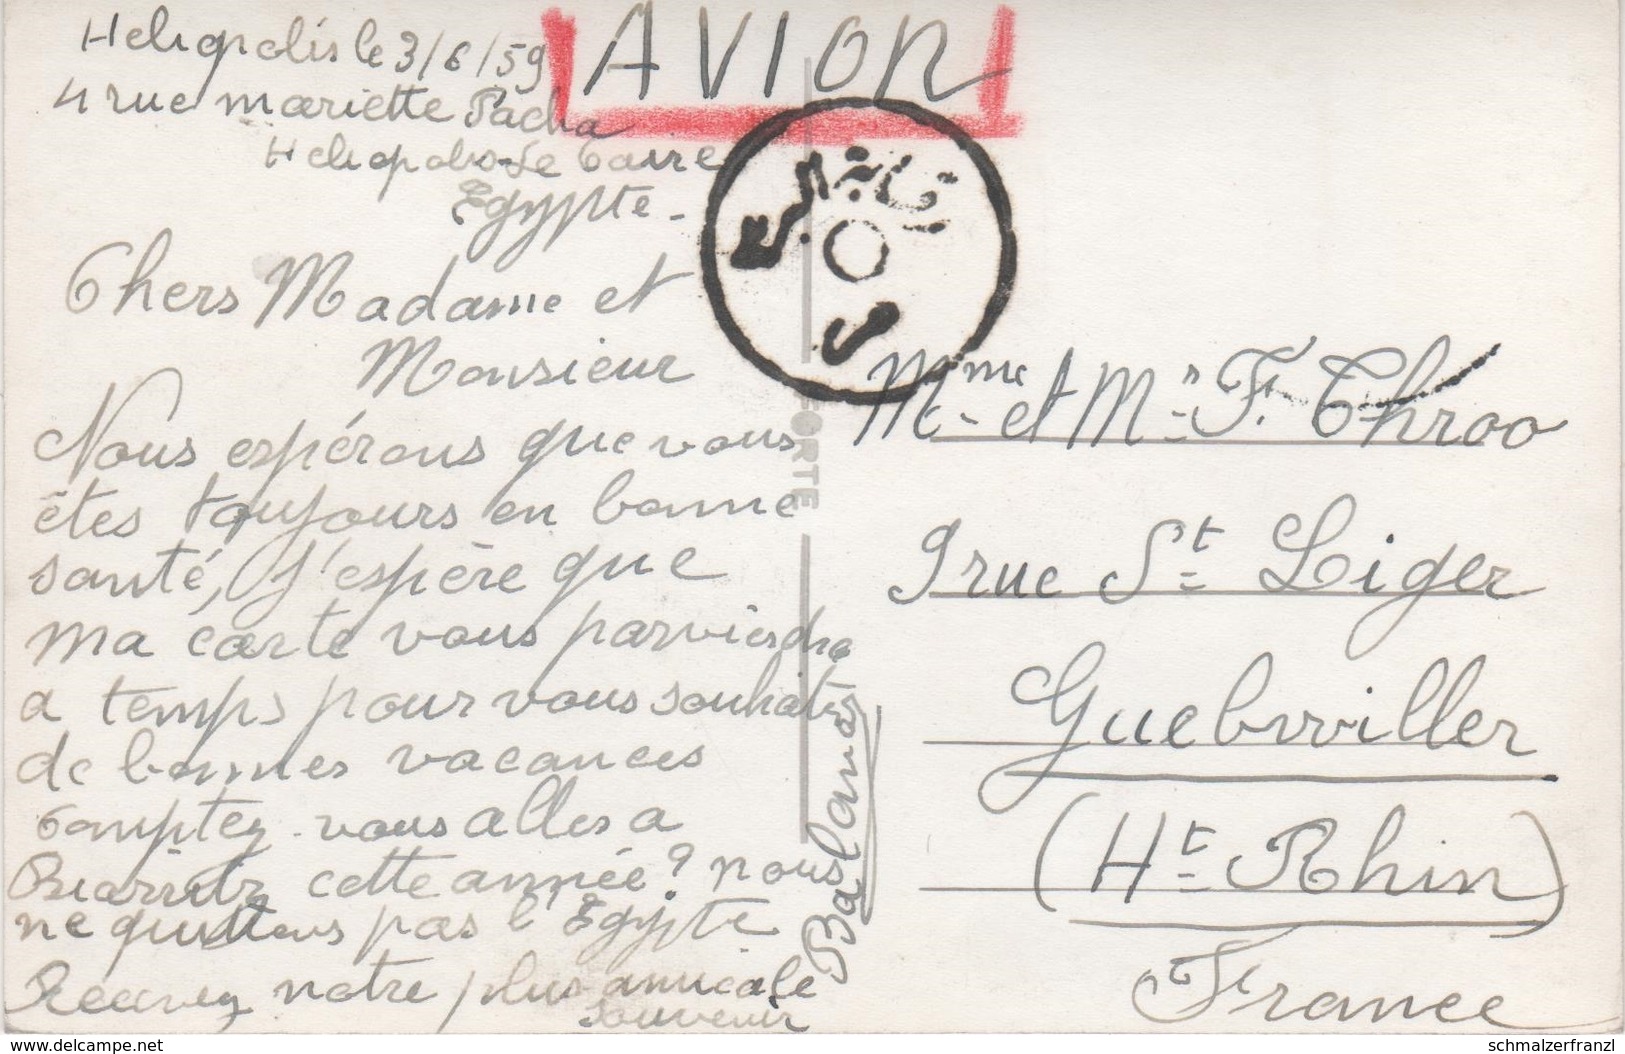 Heliopolis le 3/6/59
4 rue mariette Pacha
Heliopolis-Le Caire
Egypte-
Chers Madame et
Monsieur
Nous espérons que vous
êtes toujours en bonne
santé, J'espère que
ma carte vous parviendra
a temps pour vous souhaiter
de bonnes vacances
Comptez-vous alles a
Biarritz cette année? nous
ne quittons pas l'Egypte
Recevez notre plus amicale
souvenir
AVION
رقابة البريد
س
ORTE
Mme et Mr F. Throo
9 rue St Liger
Guebwiller
(Ht Rhin)
France
www.delcampe.net
schmalzerfranzl